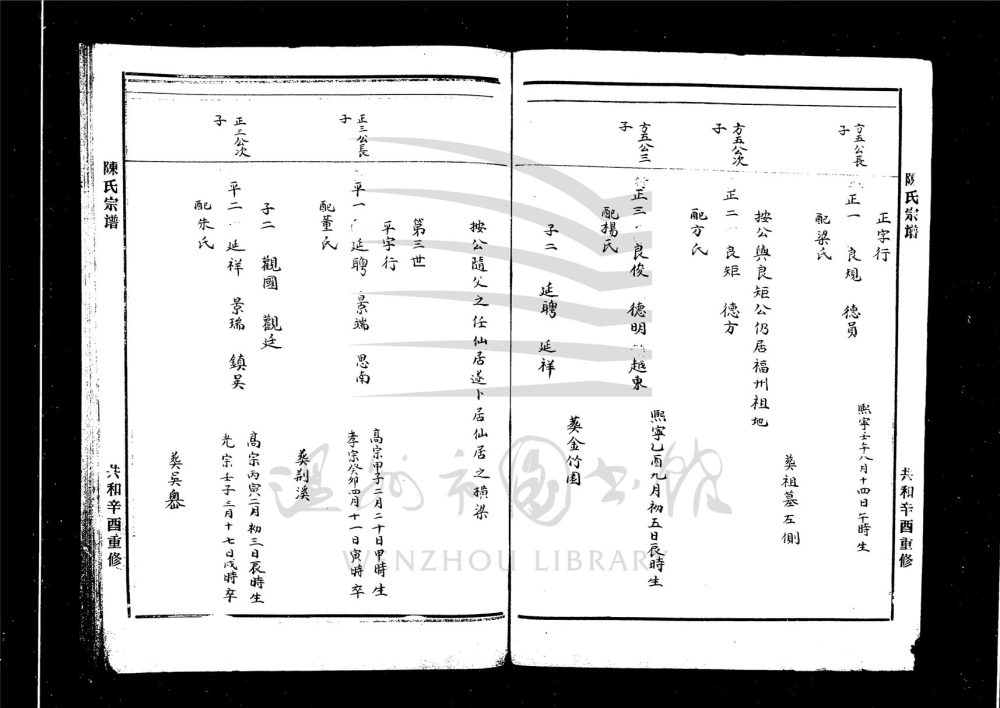 陳氏宗譜
共和辛酉重修
正字行
方五公長
子
正一 良規 德員
熙寧壬午八月十四日午時生
配梁氏
葬祖墓左側
按公與良矩公仍居福州祖地
方五公次
子
正二 良矩 德方
配方氏
方五公三
子
正三 良俊 德明 越東
熙寧乙酉九月初五日辰時生
配揚氏
葬金竹園
子二 延聘 延祥
按公隨父之任仙居遂卜居仙居之橫梁
第三世
平字行
正三公長
子
平一 延聘 景端 思南
高宗甲子二月二十日甲時生
孝宗癸卯四月十一日寅時卒
配董氏
葬荆溪
子二 觀國 觀廷
正三公次
子
平二 延祥 景瑞 鎮吴
高宗丙寅二月初三日辰時生
光宗壬子三月十七日戌時卒
配朱氏
葬吴奥
陳氏宗譜
共和辛酉重修
温州市图书馆
WENZHOU LIBRARY